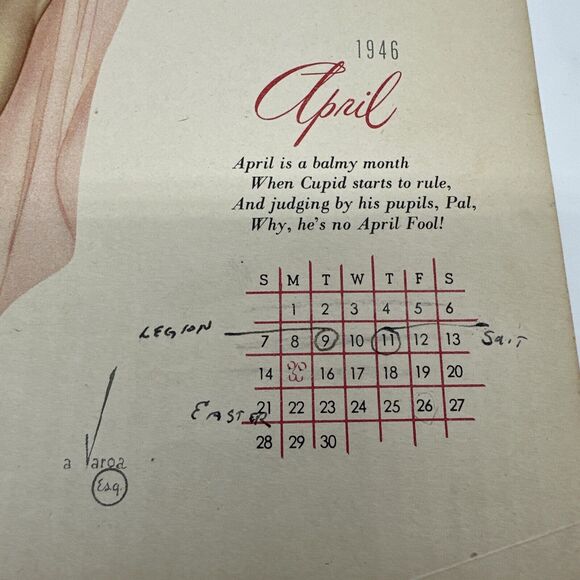 1946
April
April is a balmy month
When Cupid starts to rule,
And judging by his pupils, Pal,
Why, he's no April Fool!
S M T W T F S
1 2 3 4 5 6
LEGION 7 8 9 10 11 12 13 SUIT
14 16 17 18 19 20
EASTER 21 22 23 24 25 26 27
28 29 30
a Varga
Esq.